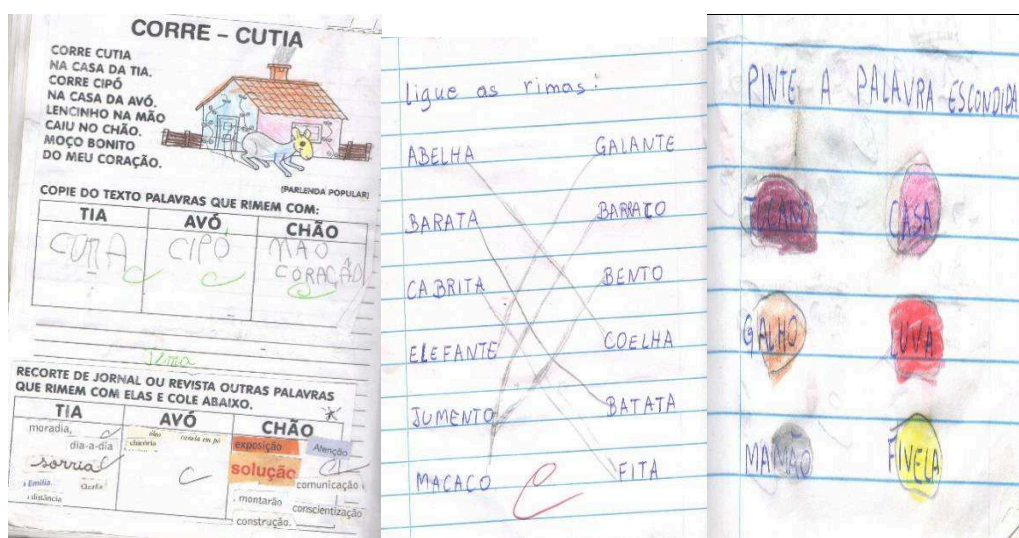 CORRE – CUTIA
CORRE CUTIA
NA CASA DA TIA.
CORRE CIPÓ
NA CASA DA AVÓ.
LENCINHO NA MÃO
CAIU NO CHÃO.
MOÇO BONITO
DO MEU CORAÇÃO.
(PARLENDA POPULAR)
COPIE DO TEXTO PALAVRAS QUE RIMEM COM:
TIA AVÓ CHÃO
CIPÓ MÃO
CORAÇÃO
Tema
RECORTE DE JORNAL OU REVISTA OUTRAS PALAVRAS
QUE RIMEM COM ELAS E COLE ABAIXO.
TIA AVÓ CHÃO
moradia,
dia-a-dia
sorria
Emília
distância
canela em pó
exposição Atenção
solução
comunicação
montarão conscientização
construção.
ligue as rimas:
ABELHA GALANTE
BARATA BARRACO
CABRITA BENTO
ELEFANTE COELHA
JUMENTO BATATA
MACACO FITA
PINTE A PALAVRA ESCONDIDA
TUCANO CASA
GALHO LUVA
MAMÃO FIVELA